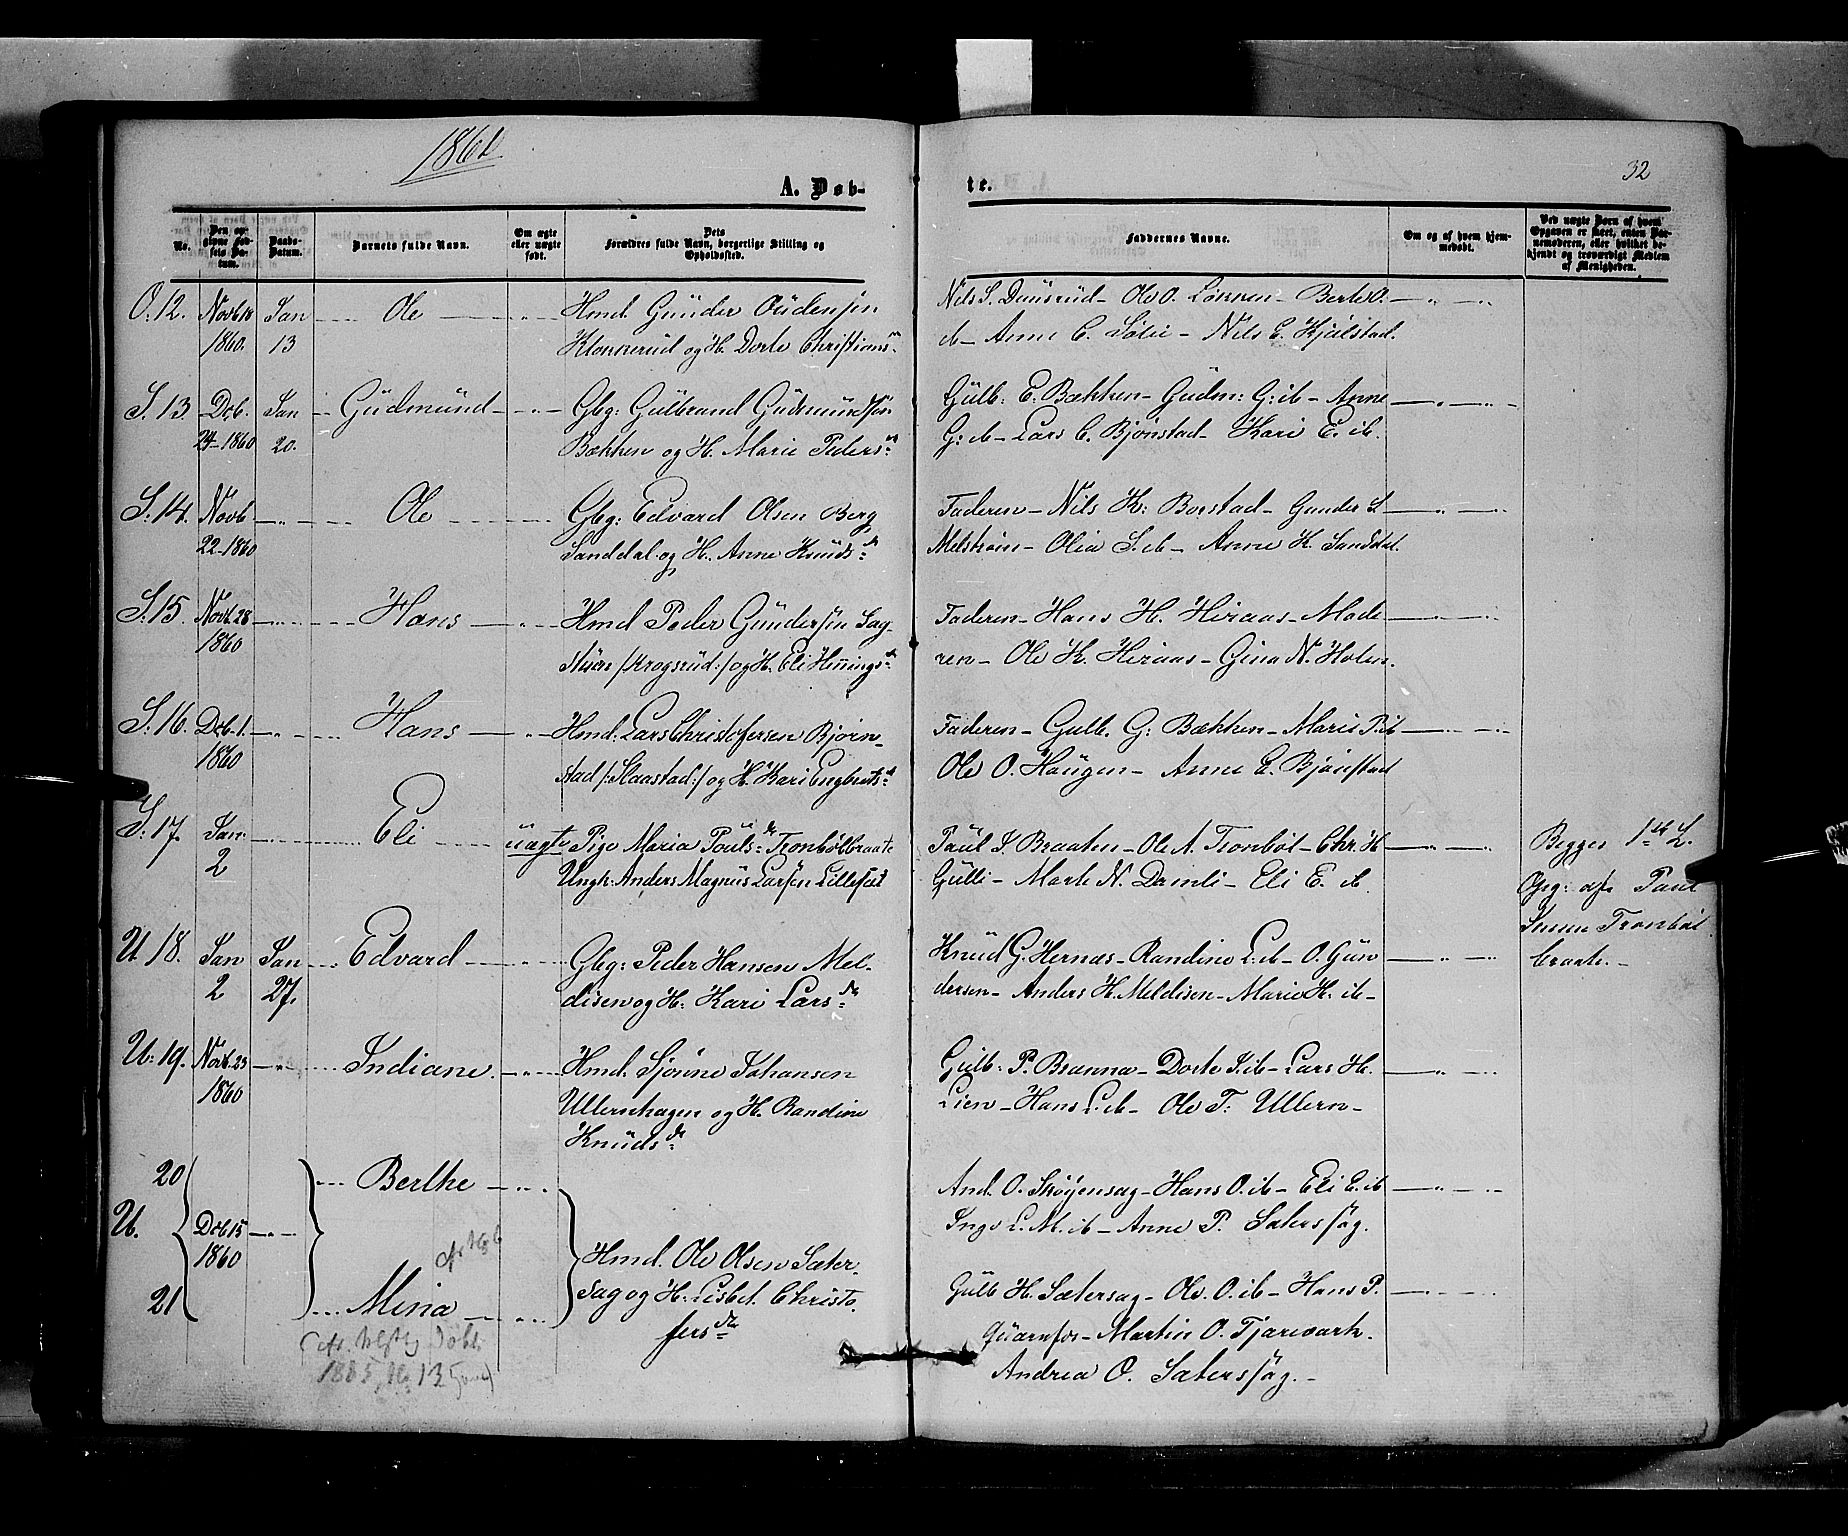 1861
A. Døb-
te.
32
No.
Den op-
givne Fød-
sels Da-
tum.
Daabs-
Datum.
Barnets fulde Navn.
Om ægte
eller uægte
født.
Dets
Forældres fulde Navn, borgerlige Stilling og
Opholdssted.
Faddernes Navne.
Om og af hvem hjem-
medøbt.
Ved uægte Børn af hvem
Opgaven er skeet, enten Bar-
nemoderen, eller hvilket be-
kjendt og troværdigt Medlem
af Menigheden.
O. 12. Novb 18 Jan Ole Hmd. Gunder Oudensen Nils S. Dausrud - Ole O. Lønnen - Berte O.
1860. 13 Klokkerud og H. Dorte Christians ib - Anne C. Lølie - Nils E. Kjølstad.
S. 13 Dcb. Jan Gudmund Gbg: Gulbrand Gudmundsen Gulb: E. Bækken - Gudm: G: ib - Anne
24-1860 20. Bækken og H. Marie Peders G: ib - Lars C. Bjønstad - Kari E. ib.
S: 14. Novb Ole Gbg: Edvard Olsen Berg Faderen - Nils K: Borstad - Gunder S
22-1860 Sanddal og H. Anne Knuds dr Melstrøm - Olia S. ib - Anne K. Sanddal.
S: 15. Novb. 28 Hans Hmd Peder Gundersen Sag- Faderen - Hans H. Heraas - Mode
1860 stuen /:Krogsrud:/ og H. Eli Hennings dr ren - Ole K. Heraas - Gina N. Holen.
S: 16. Dcb. 1. Hans Hmd. Lars Christofersen Bjørn- Faderen - Gulb. G: Bækken - Marie P. ib
1860 stad /:Slaastad:/ og H. Kari Engbrets dr Ole O. Haugen - Anne C. Bjønstad
S: 17. Jan: Eli uægte Pige Maria Pouls dr Tronbølbraate Paul J Braaten - Ole A. Tronbøl - Chr. H Begges 1ste L.
2 Ungk: Anders Magnus Larsen Lilleset Gulli - Marte N. Damli - Eli E. ib. Opg: af Paul
Jensen Tronbøl
braate. -
U 18. Jan Jan Edvard Gbg: Peder Hansen Mel- Knud G. Hernæs - Randine L: ib - O. Gun
2 27. disen og H: Kari Lars dr dersen - Anders H. Meldisen - Marie H. ib -
U: 19. Novb. 23 Indiane. Hmd. Sjønne Johansen Gulb: P. Brænna - Dorte J. ib - Lars H.
1860 Ullernhagen og H. Randine Lien - Hans L. ib - Ole T: Ullern -
Knuds dr
20 Berthe And. O. Skøyensag - Hans O. ib - Eli E. ib
U. Dcb 15 Inge L. M. ib - Anne P. Sætersag.
1860 Hmd. Ole Olsen Sæter-
21 Mina sag og H: Lisbet Christo- Gulb H. Sætersag - Ole. O. ib - Hans P.
fers dr Quarnfos - Martin O. Tjærevark.
Andrea O. Sætersag. -
1885